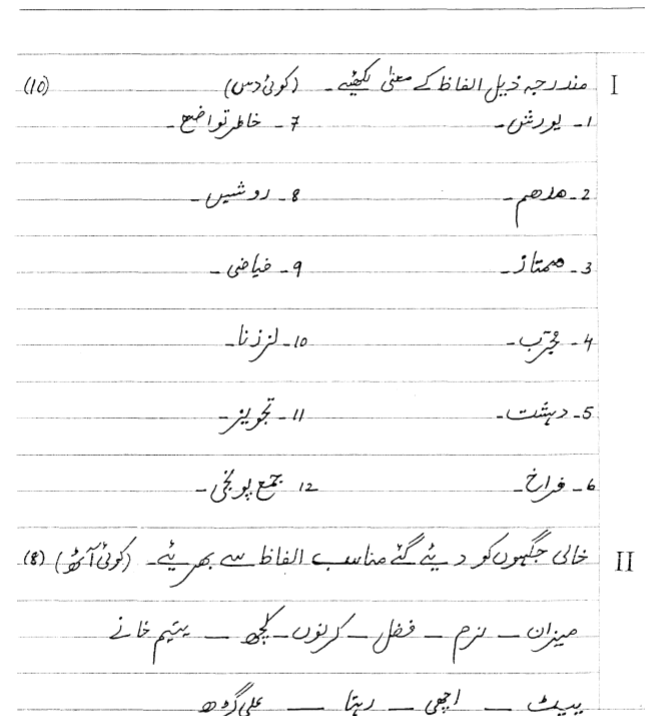 I مندرجہ ذیل الفاظ کے معنی لکھئیے ۔ (کوئی دس) (10)
1- یورش ۔ 7- خاطر تواضع ۔
2- مدھم ۔ 8- روشیں ۔
3- ممتاز ۔ 9- فیاضی ۔
4- مجرّب ۔ 10- لرزنا ۔
5- دہشت ۔ 11- تجویز ۔
6- فراخ ۔ 12 جمع پونجی ۔
II خالی جگہوں کو دیئے گئے مناسب الفاظ سے بھریئے ۔ (کوئی آٹھ) (8)
میزان ـ نرم ـ فضل ـ کرنوں ـ کچھ ـ یتیم خانے
پیٹ ـ اچھی ـ رہتا ـ علی گڑھ